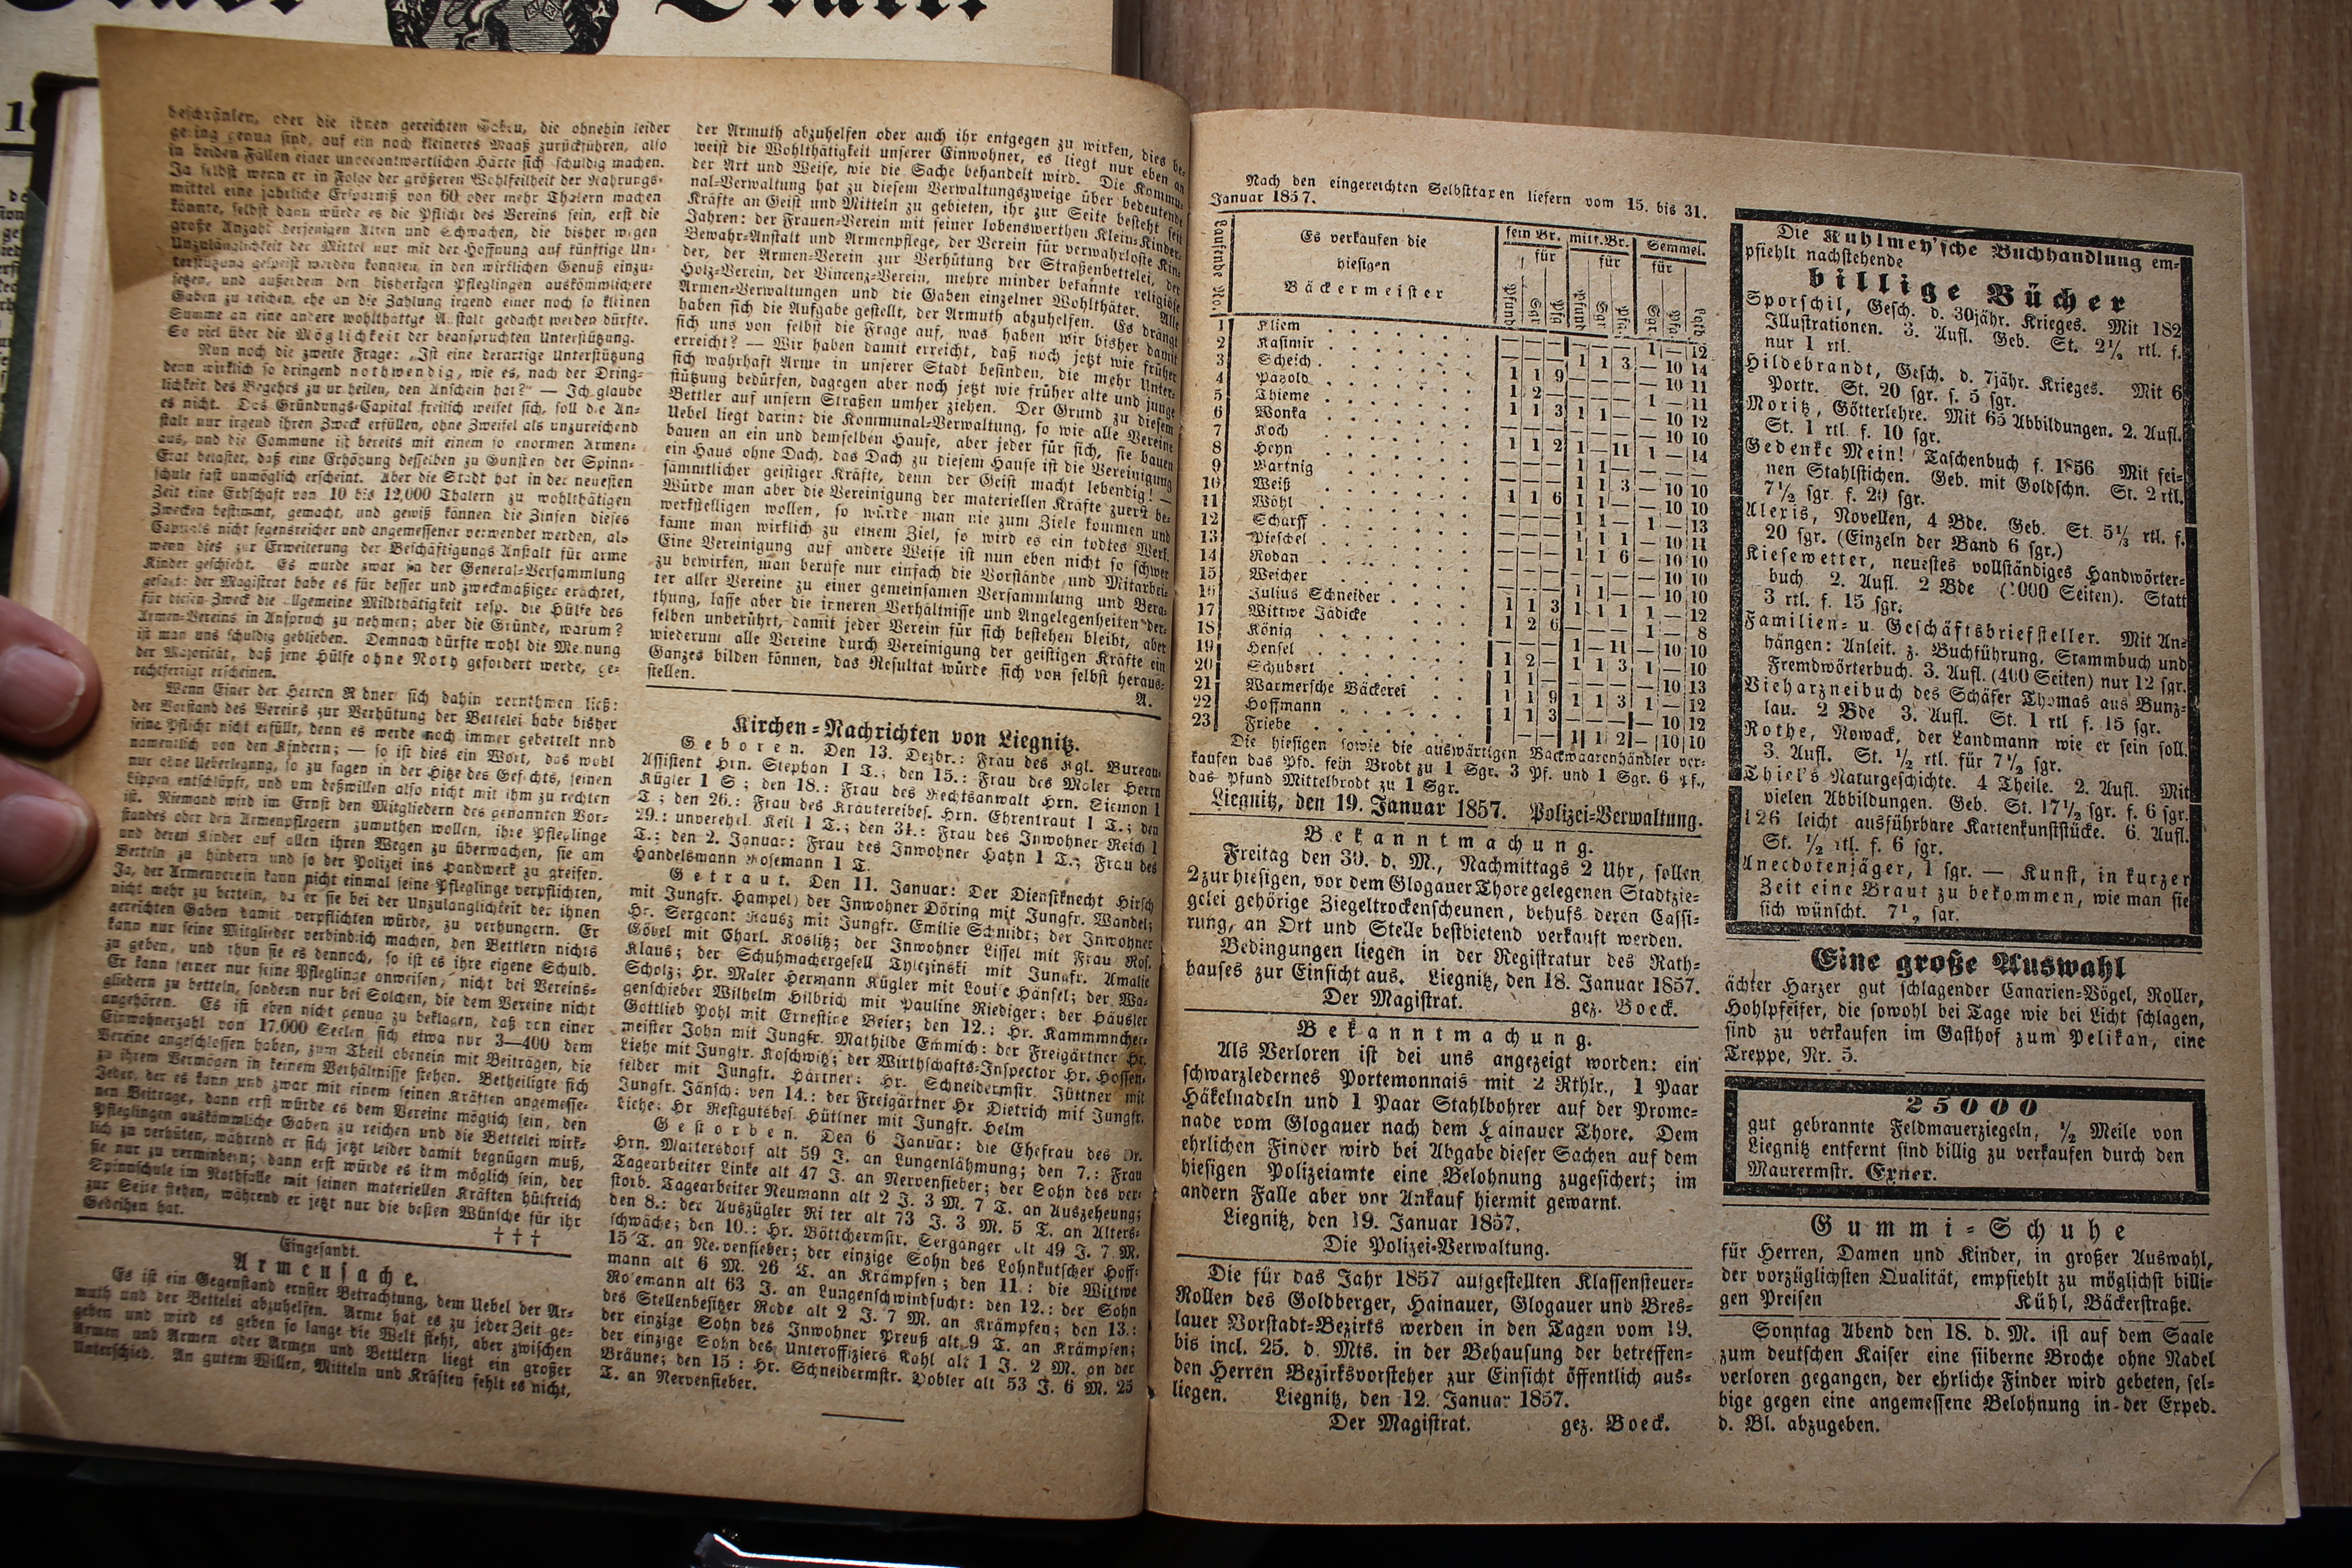 beschränken, oder die ihnen gereichten Gaben, die ohnehin leider
gering genug sind, auf ein noch kleineres Maaß zurückführen, also
in beiden Fällen einer unverantwortlichen Härte sich schuldig machen.
Ja selbst wenn er in Folge der größeren Wohlfeilheit der Nahrungs-
mittel eine jährliche Ersparniß von 60 oder mehr Thalern machen
könnte, selbst dann würde es die Pflicht des Vereins sein, erst die
große Anzahl derjenigen Alten und Schwachen, die bisher wegen
Unzulänglichkeit der Mittel nur mit der Hoffnung auf künftige Un-
terstützung gespeist werden konnten, in den wirklichen Genuß einzu-
setzen, und außerdem den bisherigen Pfleglingen auskömmlichere
Gaben zu reichen, ehe an die Zahlung irgend einer noch so kleinen
Summe an eine andere wohlthättge Anstalt gedacht werden dürfte.
So viel über die Möglichkeit der beanspruchten Unterstützung.
Nun noch die zweite Frage: „Ist eine derartige Unterstützung
denn wirklich so dringend nothwendig, wie es, nach der Dring-
lichkeit des Begehrs zu urtheilen, den Anschein hat?“ — Ich glaube
es nicht. Das Gründungs-Capital freilich weiset sich, soll die An-
stalt nur irgend ihren Zweck erfüllen, ohne Zweifel als unzureichend
aus, und die Commune ist bereits mit einem so enormen Armen-
Etat belastet, daß eine Erhöhung desselben zu Gunsten der Spinn-
schule fast unmöglich erscheint. Aber die Stadt hat in der neuesten
Zeit eine Erbschaft von 10 bis 12,000 Thalern zu wohlthätigen
Zwecken bestimmt, gemacht, und gewiß können die Zinsen dieses
Capitals nicht segensreicher und angemessener verwendet werden, als
wenn dies zur Erweiterung der Beschäftigungs-Anstalt für arme
Kinder geschieht. Es wurde zwar in der General-Versammlung
gesagt: der Magistrat habe es für besser und zweckmäßiger erachtet,
für diesen Zweck die allgemeine Mildthätigkeit resp. die Hülfe des
Armen-Vereins in Anspruch zu nehmen; aber die Gründe, warum?
ist man uns schuldig geblieben. Demnach dürfte wohl die Meinung
der Majorität, daß jene Hülfe ohne Noth gefordert werde, ge-
rechtfertigt erscheinen.
Wenn Einer der Herren Redner sich dahin vernehmen ließ:
der Vorstand des Vereins zur Verhütung der Bettelei habe bisher
seine Pflicht nicht erfüllt, denn es werde noch immer gebettelt und
namentlich von den Kindern; — so ist dies ein Wort, das wohl
nur ohne Ueberlegung, so zu sagen in der Hitze des Gefechts, seinen
Lippen entschlüpft, und um deßwillen also nicht mit ihm zu rechten
ist. Niemand wird im Ernst den Mitgliedern des genannten Vor-
standes oder den Armenpflegern zumuthen wollen, ihre Pfleglinge
und deren Kinder auf allen ihren Wegen zu überwachen, sie am
Betteln zu hindern und so der Polizei ins Handwerk zu greifen.
Ja, der Armenverein kann nicht einmal seine Pfleglinge verpflichten,
nicht mehr zu betteln, da er sie bei der Unzulänglichkeit der ihnen
gereichten Gaben damit verpflichten würde, zu verhungern. Er
kann nur seine Mitglieder verbindlich machen, den Bettlern nichts
zu geben, und thun sie es dennoch, so ist es ihre eigene Schuld.
Er kann ferner nur seine Pfleglinge anweisen, nicht bei Vereins-
gliedern zu betteln, sondern nur bei Solchen, die dem Vereine nicht
angehören. Es ist eben nicht genug zu beklagen, daß von einer
Einwohnerzahl von 17,000 Seelen sich etwa nur 3—400 dem
Vereine angeschlossen haben, zum Theil obenein mit Beiträgen, die
zu ihrem Vermögen in keinem Verhältnisse stehen. Betheiligte sich
Jeder, der es kann und zwar mit einem seinen Kräften angemesse-
nen Beitrage, dann erst würde es dem Vereine möglich sein, den
Pfleglingen auskömmliche Gaben zu reichen und die Bettelei wirk-
lich zu verhüten, während er sich jetzt leider damit begnügen muß,
sie nur zu vermindern; dann erst würde es ihm möglich sein, der
Spinnschule im Nothfalle mit seinen materiellen Kräften hülfreich
zur Seite stehen, während er jetzt nur die besten Wünsche für ihr
Gedeihen hat.
† † †
Eingesandt.
Armensache.
Es ist ein Gegenstand ernster Betrachtung, dem Uebel der Ar-
muth und der Bettelei abzuhelfen. Arme hat es zu jeder Zeit ge-
geben und wird es geben so lange die Welt steht, aber zwischen
Armen und Armen oder Armen und Bettlern liegt ein großer
Unterschied. An gutem Willen, Mitteln und Kräften fehlt es nicht,
der Armuth abzuhelfen oder auch ihr entgegen zu wirken, dies be-
weist die Wohlthätigkeit unserer Einwohner, es liegt nur eben an
der Art und Weise, wie die Sache behandelt wird. Die Kommu-
nal-Verwaltung hat zu diesem Verwaltungszweige über bedeutende
Kräfte an Geist und Mitteln zu gebieten, ihr zur Seite besteht seit
Jahren: der Frauen-Verein mit seiner lobenswerthen Klein-Kinder-
Bewahr-Anstalt und Armenpflege, der Verein für verwahrloste Kin-
der, der Armen-Verein zur Verhütung der Straßenbettelei, der
Holz-Verein, der Vincenz-Verein, mehre minder bekannte religiöse
Armen-Verwaltungen und die Gaben einzelner Wohlthäter. Alle
haben sich die Aufgabe gestellt, der Armuth abzuhelfen. Es drängt
sich uns von selbst die Frage auf, was haben wir bisher damit
erreicht? — Wir haben damit erreicht, daß noch jetzt wie früher
sich wahrhaft Arme in unserer Stadt befinden, die mehr Unter-
stützung bedürfen, dagegen aber noch jetzt wie früher alte und junge
Bettler auf unsern Straßen umher ziehen. Der Grund zu diesem
Uebel liegt darin: die Kommunal-Verwaltung, so wie alle Vereine
bauen an ein und demselben Hause, aber jeder für sich, sie bauen
ein Haus ohne Dach, das Dach zu diesem Hause ist die Vereinigung
sämmtlicher geistiger Kräfte, denn der Geist macht lebendig! —
Würde man aber die Vereinigung der materiellen Kräfte zuerst be-
werkstelligen wollen, so würde man nie zum Ziele kommen und
käme man wirklich zu einem Ziel, so wird es ein todtes Werk.
Eine Vereinigung auf andere Weise ist nun eben nicht so schwer
zu bewirken, man berufe nur einfach die Vorstände und Mitarbei-
ter aller Vereine zu einer gemeinsamen Versammlung und Bera-
thung, lasse aber die inneren Verhältnisse und Angelegenheiten der-
selben unberührt, damit jeder Verein für sich bestehen bleibt, aber
wiederum alle Vereine durch Vereinigung der geistigen Kräfte ein
Ganzes bilden können, das Resultat würde sich von selbst heraus-
stellen.
A.
Kirchen-Nachrichten von Liegnitz.
Geboren. Den 13. Dezbr.: Frau des Kgl. Bureau-
Assistent Hrn. Stephan 1 T.; den 15.: Frau des Maler Herrn
Kügler 1 S; den 18.: Frau des Rechtsanwalt Hrn. Siemon 1
T; den 26.: Frau des Kräutereibes. Hrn. Ehrentraut 1 T.; den
29.: unverehel. Keil 1 T.; den 31.: Frau des Inwohner Reich 1
T.: den 2. Januar: Frau des Inwohner Hahn 1 T.; Frau des
Handelsmann Rosemann 1 T.
Getraut. Den 11. Januar: Der Dienstknecht Hirsch
mit Jungfr. Hampel; der Inwohner Döring mit Jungfr. Wandel;
Hr. Sergeant Rausz mit Jungfr. Emilie Schmidt; der Inwohner
Göbel mit Charl. Koslitz; der Inwohner Lissel mit Frau Ros.
Klaus; der Schuhmachergesell Tylczinski mit Jungfr. Amalie
Scholz; Hr. Maler Hermann Kügler mit Louise Hänsel; der Wa-
genschieber Wilhelm Hilbrich mit Pauline Riediger; der Häusler
Gottlieb Pohl mit Ernestine Beier; den 12.: Hr. Kammmacher-
meister John mit Jungfr. Mathilde Emmich: der Freigärtner Hr.
Liehe mit Jungfr. Koschwitz; der Wirthschafts-Inspector Hr. Hoffen-
felder mit Jungfr. Härtner: Hr. Schneidermstr. Jüttner mit
Jungfr. Jänsch: den 14.: der Freigärtner Hr Dietrich mit Jungfr.
Liehe; Hr Restgutsbes. Hüttner mit Jungfr. Helm
Gestorben. Den 6 Januar: die Ehefrau des Dr.
Hrn. Mattersdorf alt 59 J. an Lungenlähmung; den 7.: Frau
Tagearbeiter Linke alt 47 J. an Nervenfieber; der Sohn des ver-
storb. Tagearbeiter Neumann alt 2 J. 3 M. 7 T. an Auszehrung;
den 8.: der Auszügler Ritter alt 73 J. 3 M. 5 T. an Alters-
schwäche; den 10.: Hr. Böttchermstr. Sergänger alt 49 J. 7 M.
15 T. an Nervenfieber; der einzige Sohn des Lohnkutscher Hoff-
mann alt 6 M. 26 T. an Krämpfen; den 11.: die Wittwe
Rosemann alt 63 J. an Lungenschwindsucht: den 12.: der Sohn
des Stellenbesitzer Rode alt 2 J. 7 M. an Krämpfen; den 13.:
der einzige Sohn des Inwohner Preuß alt 9 T. an Krämpfen;
der einzige Sohn des Unteroffiziers Kahl alt 1 J. 2 M. an der
Bräune; den 15: Hr. Schneidermstr. Hobler alt 53 J. 6 M. 25
T. an Nervenfieber.
Nach den eingereichten Selbsttaxen liefern vom 15. bis 31.
Januar 1857.
Laufende No. Es verkaufen die hiesigen Bäckermeister fein Br. für mitt. Br. für Semmel. für
Pfund Sgr Pfg Pfund Sgr Pfg Sgr Pfg Loth
1 Kliem — — — — — — 1 — 12
2 Kasimir — — — 1 1 3 — 10 14
3 Scheich 1 1 9 — — — — 10 11
4 Patzold 1 2 — — — — 1 — 11
5 Thieme 1 1 3 1 1 — — 10 12
6 Wonka — — — — — — — 10 10
7 Koch 1 1 2 1 — 11 1 — 14
8 Heyn — — — 1 1 — — — —
9 Wartnig — — — 1 1 3 — 10 10
10 Weiß 1 1 6 1 1 — — 10 10
11 Wöhl — — — 1 1 — 1 — 13
12 Scharff — — — 1 1 1 — 10 11
13 Pieschel — — — 1 1 6 — 10 10
14 Rodan — — — — — — — 10 10
15 Weicher — — — 1 1 — — 10 10
16 Julius Schneider 1 1 3 1 1 1 1 — 12
17 Wittwe Jädicke 1 2 6 — — — 1 — 8
18 König — — — 1 — 11 — 10 10
19 Hensel 1 2 — 1 1 3 1 — 10
20 Schubert 1 1 — — — — — 10 13
21 Warmersche Bäckerei 1 1 9 1 1 3 1 — 12
22 Hoffmann 1 1 3 — — — — 10 12
23 Friebe — — — 1 1 2 — 10 10
Die hiesigen sowie die auswärtigen Backwaarenhändler ver-
kaufen das Pfd. fein Brodt zu 1 Sgr. 3 Pf. und 1 Sgr. 6 Pf.,
das Pfund Mittelbrodt zu 1 Sgr.
Liegnitz, den 19. Januar 1857. Polizei-Verwaltung.
Bekanntmachung.
Freitag den 30. d. M., Nachmittags 2 Uhr, sollen
2 zur hiesigen, vor dem Glogauer Thore gelegenen Stadtzie-
gelei gehörige Ziegeltrockenscheunen, behufs deren Cassi-
rung, an Ort und Stelle bestbietend verkauft werden.
Bedingungen liegen in der Registratur des Rath-
hauses zur Einsicht aus. Liegnitz, den 18. Januar 1857.
Der Magistrat. gez. Boeck.
Bekanntmachung.
Als Verloren ist bei uns angezeigt worden: ein
schwarzledernes Portemonnais mit 2 Rthlr., 1 Paar
Häkelnadeln und 1 Paar Stahlbohrer auf der Prome-
nade vom Glogauer nach dem Hainauer Thore. Dem
ehrlichen Finder wird bei Abgabe dieser Sachen auf dem
hiesigen Polizeiamte eine Belohnung zugesichert; im
andern Falle aber vor Ankauf hiermit gewarnt.
Liegnitz, den 19. Januar 1857.
Die Polizei-Verwaltung.
Die für das Jahr 1857 aufgestellten Klassensteuer-
Rollen des Goldberger, Hainauer, Glogauer und Bres-
lauer Vorstadt-Bezirks werden in den Tagen vom 19.
bis incl. 25. d. Mts. in der Behausung der betreffen-
den Herren Bezirksvorsteher zur Einsicht öffentlich aus-
liegen. Liegnitz, den 12. Januar 1857.
Der Magistrat. gez. Boeck.
Die Kuhlmey'sche Buchhandlung em-
pfiehlt nachstehende
billige Bücher
Sporschil, Gesch. d. 30jähr. Krieges. Mit 182
Illustrationen. 3. Aufl. Geb. St. 2½ rtl. f.
nur 1 rtl.
Hildebrandt, Gesch. d. 7jähr. Krieges. Mit 6
Portr. St. 20 sgr. f. 5 sgr.
Moritz, Götterlehre. Mit 65 Abbildungen. 2. Aufl.
St. 1 rtl. f. 10 sgr.
Gedenke Mein! Taschenbuch f. 1856. Mit fei-
nen Stahlstichen. Geb. mit Goldschn. St. 2 rtl.
7½ sgr. f. 20 sgr.
Alexis, Novellen, 4 Bde. Geb. St. 5⅓ rtl. f.
20 sgr. (Einzeln der Band 6 sgr.)
Kiesewetter, neuestes vollständiges Handwörter-
buch. 2. Aufl. 2 Bde (1000 Seiten). Statt
3 rtl. f. 15 sgr.
Familien- u Geschäftsbriefsteller. Mit An-
hängen: Anleit. z. Buchführung, Stammbuch und
Fremdwörterbuch. 3. Aufl. (400 Seiten) nur 12 sgr.
Vieharzneibuch des Schäfer Thomas aus Bunz-
lau. 2 Bde 3. Aufl. St. 1 rtl f. 15 sgr.
Rothe, Nowack, der Landmann wie er sein soll.
3. Aufl. St. ½ rtl. für 7½ sgr.
Thiel's Naturgeschichte. 4 Theile. 2. Aufl. Mit
vielen Abbildungen. Geb. St. 17½ sgr. f. 6 sgr.
126 leicht ausführbare Kartenkunststücke. 6. Aufl.
St. ½ rtl. f. 6 sgr.
Anecdotenjäger, 1 sgr. — Kunst, in kurzer
Zeit eine Braut zu bekommen, wie man sie
sich wünscht. 7½ sgr.
Eine große Auswahl
ächter Harzer gut schlagender Canarien-Vögel, Roller,
Hohlpfeifer, die sowohl bei Tage wie bei Licht schlagen,
sind zu verkaufen im Gasthof zum Pelikan, eine
Treppe, Nr. 5.
25000
gut gebrannte Feldmauerziegeln, ½ Meile von
Liegnitz entfernt sind billig zu verkaufen durch den
Maurermstr. Exner.
Gummi-Schuhe
für Herren, Damen und Kinder, in großer Auswahl,
der vorzüglichsten Qualität, empfiehlt zu möglichst billi-
gen Preisen Kühl, Bäckerstraße.
Sonntag Abend den 18. d. M. ist auf dem Saale
zum deutschen Kaiser eine silberne Broche ohne Nadel
verloren gegangen, der ehrliche Finder wird gebeten, sel-
bige gegen eine angemessene Belohnung in der Exped.
d. Bl. abzugeben.